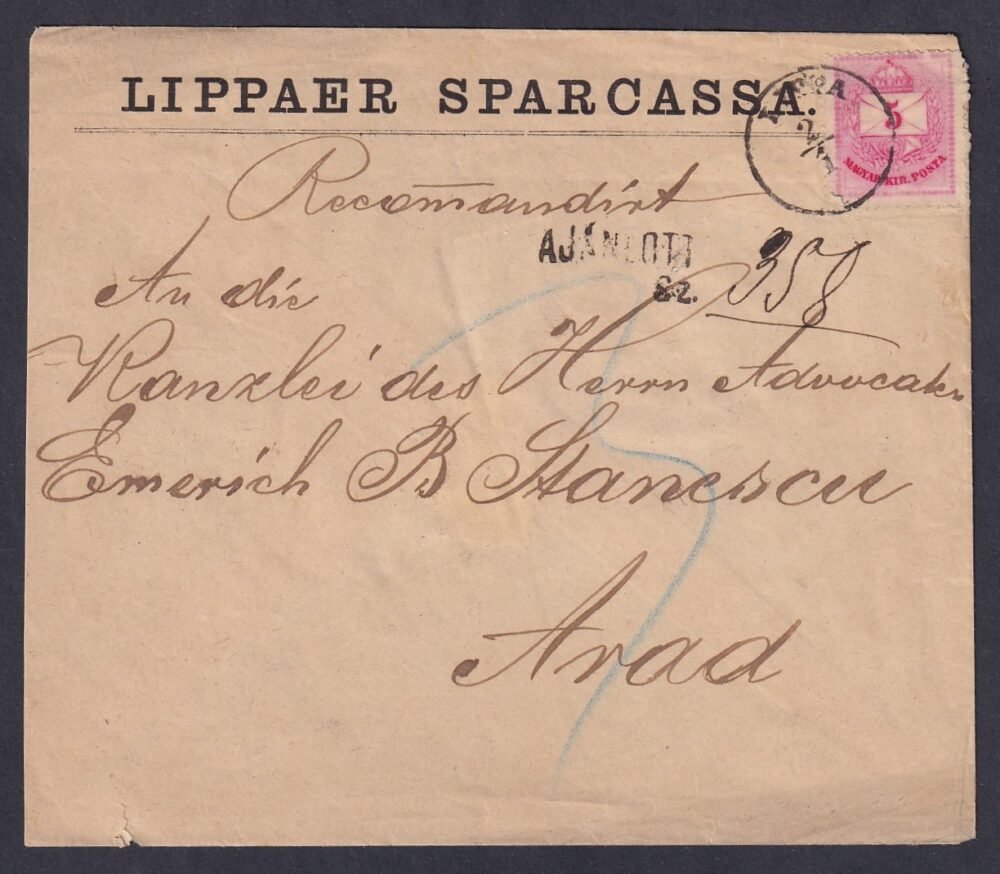 LIPPAER SPARCASSA.
5
MAGYAR KIR. POSTA
LIPPA
Recomandirt
AJÁNLOTT
Sz. 358
An die
Kanzlei des Herrn Advocaten
Emerich B Stanescu
Arad